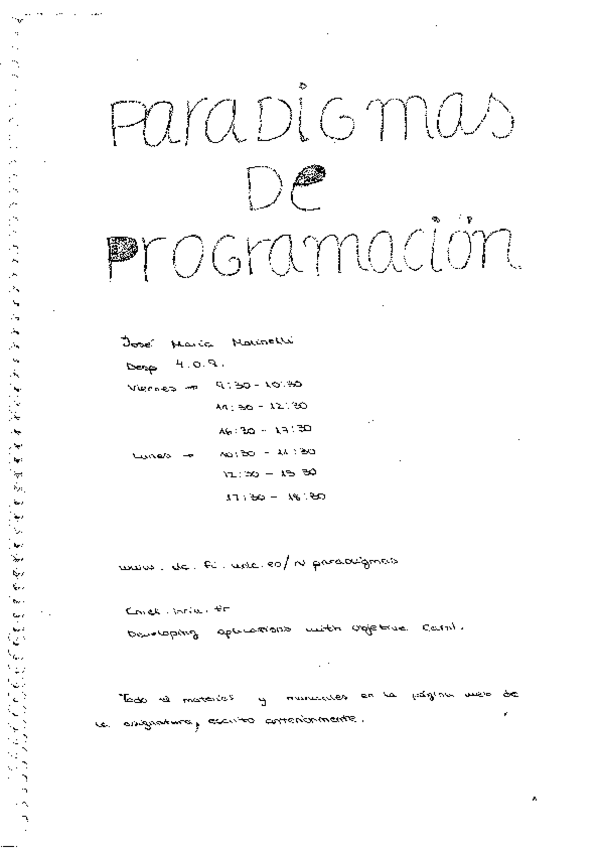 Paradigmas
De
Programación
José María Molinelli
Desp 4.0.9.
Viernes → 9:30 - 10:30
11:30 - 12:30
16:30 - 17:30
Lunes → 10:30 - 11:30
12:30 - 13 30
17:30 - 18:30
www.dc.fi.udc.es/~paradigmas
inria.fr
Developing aplications with objetive Caml.
Todo el material y manuales en la página web de
la asignatura, escrito anteriormente.